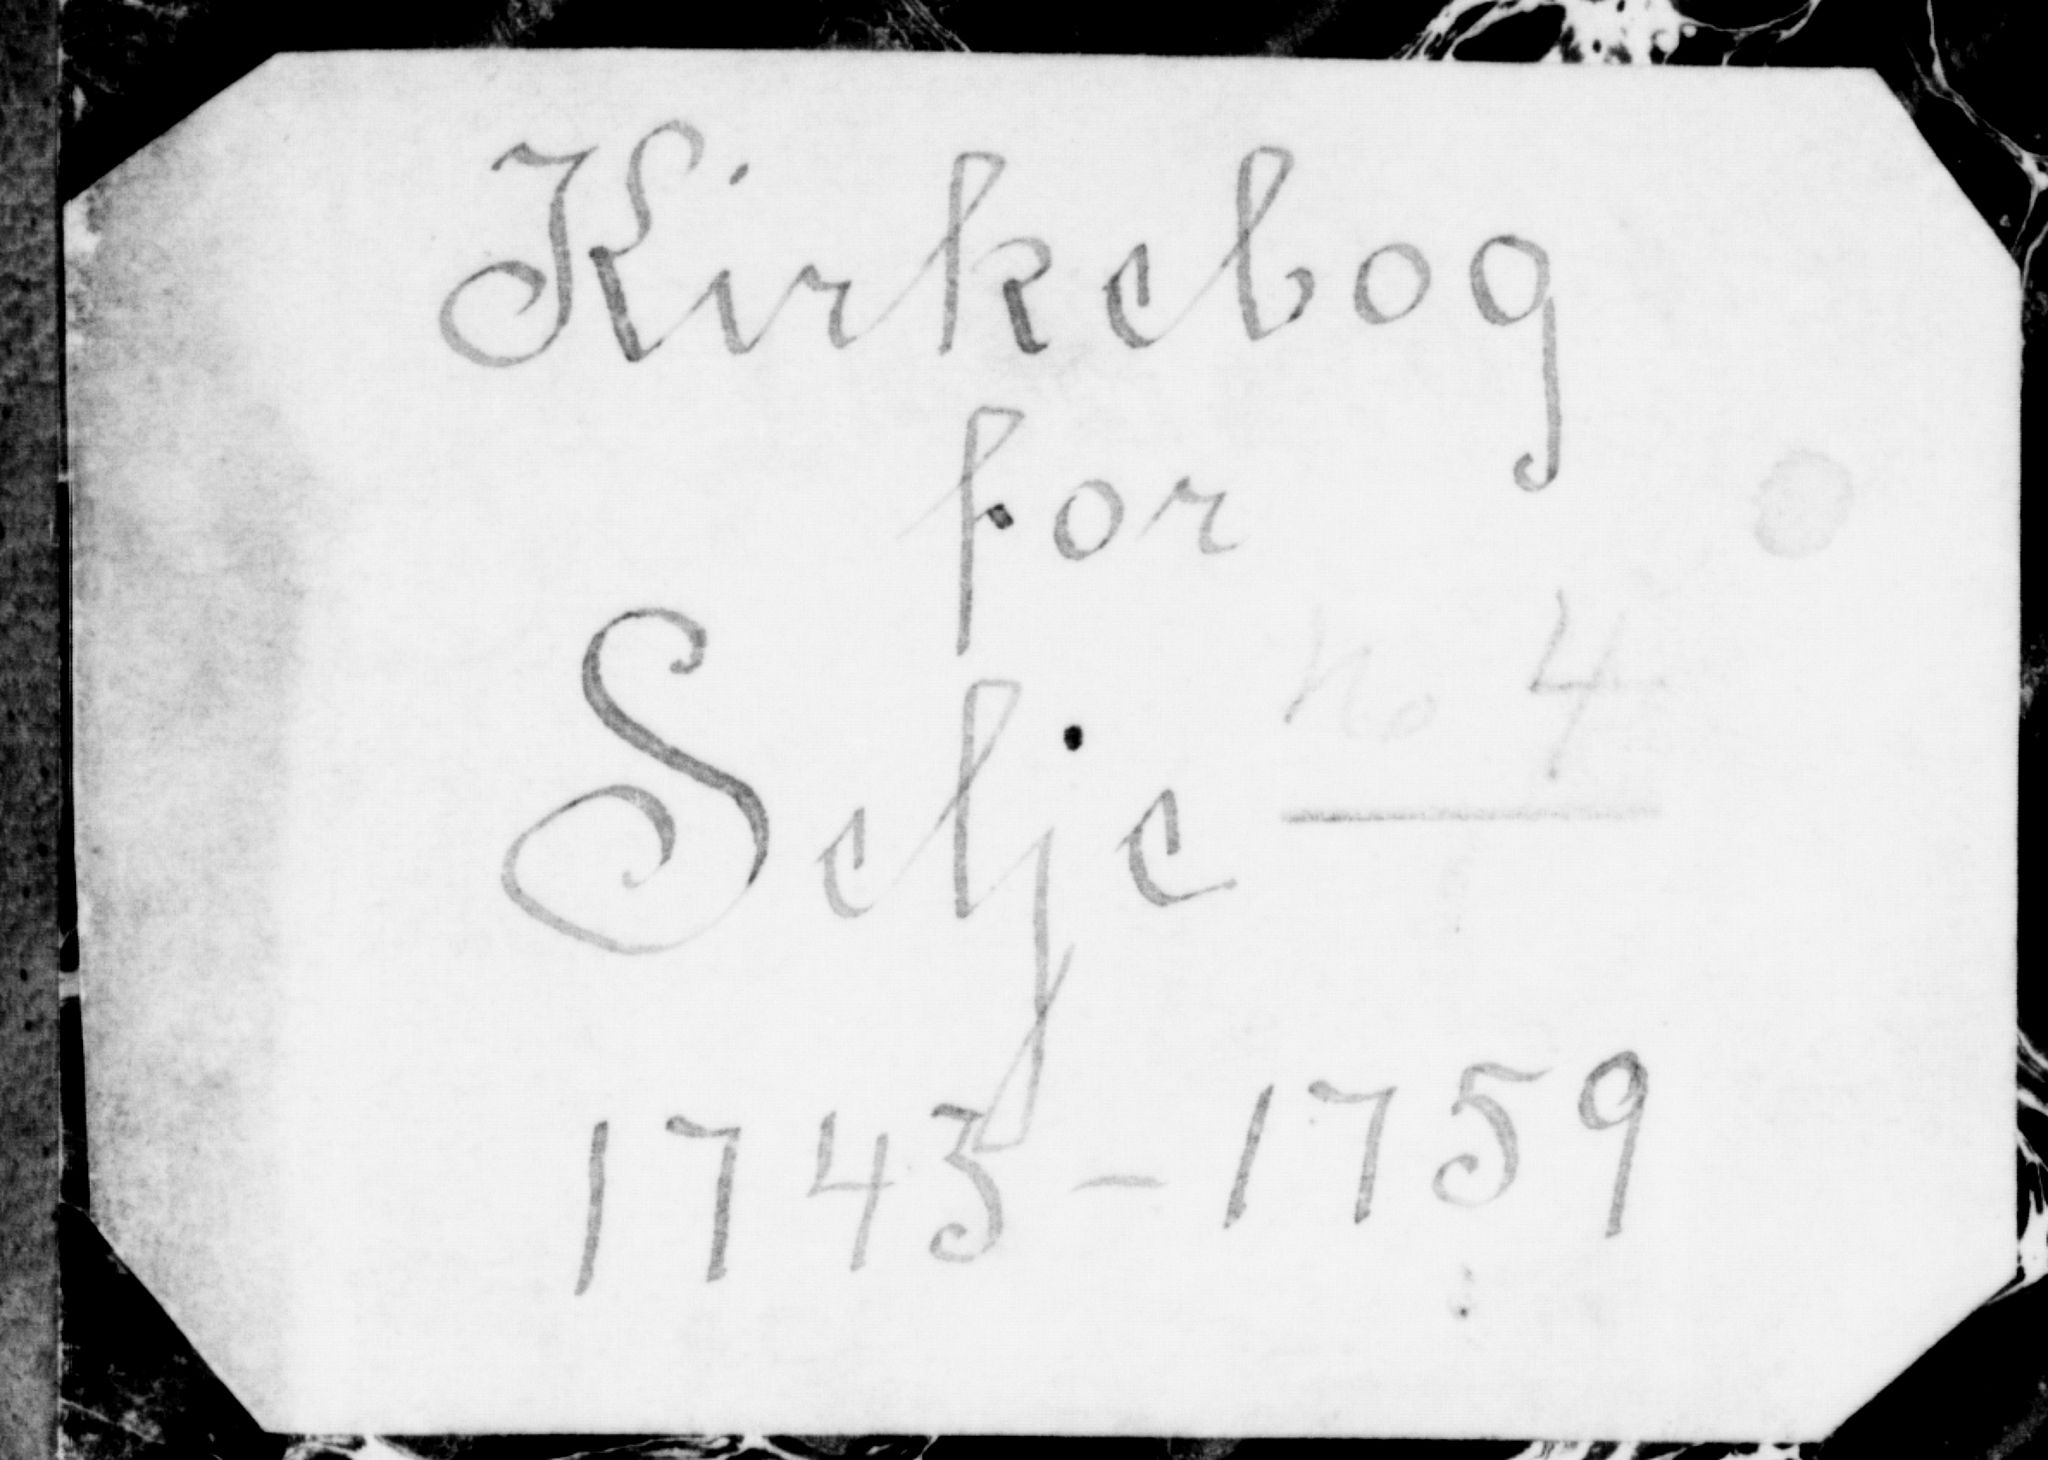 Kirkebog
for
Selje
No 4
1743 - 1759